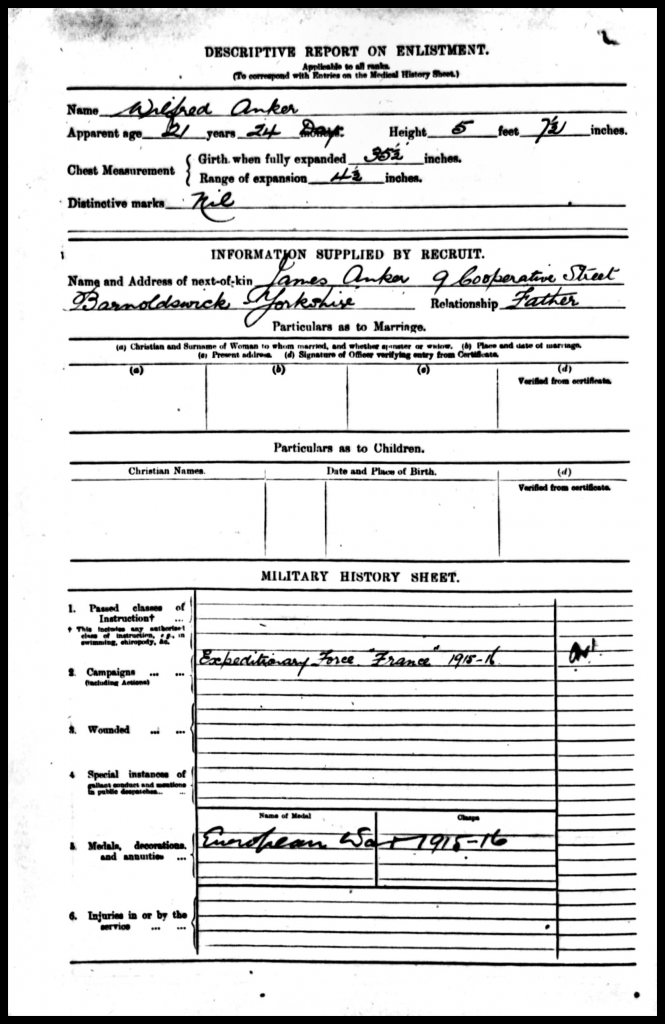 DESCRIPTIVE REPORT ON ENLISTMENT.
Applicable to all ranks.
(To correspond with Entries on the Medical History Sheet.)
Name Wilfred Anker
Apparent age 21 years 24 Days. Height 5 feet 7½ inches.
Chest Measurement { Girth when fully expanded 35½ inches.
Range of expansion 4½ inches.
Distinctive marks Nil
INFORMATION SUPPLIED BY RECRUIT.
Name and Address of next-of-kin James Anker 9 Cooperative Street
Barnoldswick Yorkshire Relationship Father
Particulars as to Marriage.
(a) Christian and Surname of Woman to whom married, and whether spinster or widow. (b) Place and date of marriage.
(c) Present address. (d) Signature of Officer verifying entry from Certificate.
(a) (b) (c) (d)
Verified from certificate.
Particulars as to Children.
Christian Names. Date and Place of Birth. (d)
Verified from certificate.
MILITARY HISTORY SHEET.
1. Passed classes of
Instruction† ...
† This includes any authorised
class of instruction, e.g., in
swimming, chiropody, &c.
Expeditionary Force "France" 1915-16
2. Campaigns ... ...
(including Actions)
3. Wounded ... ...
4 Special instances of
gallant conduct and mentions
in public despatches... ...
Name of Medal Clasps
European War 1915-16
5. Medals, decorations,
and annuities ...
6. Injuries in or by the
service ... ...